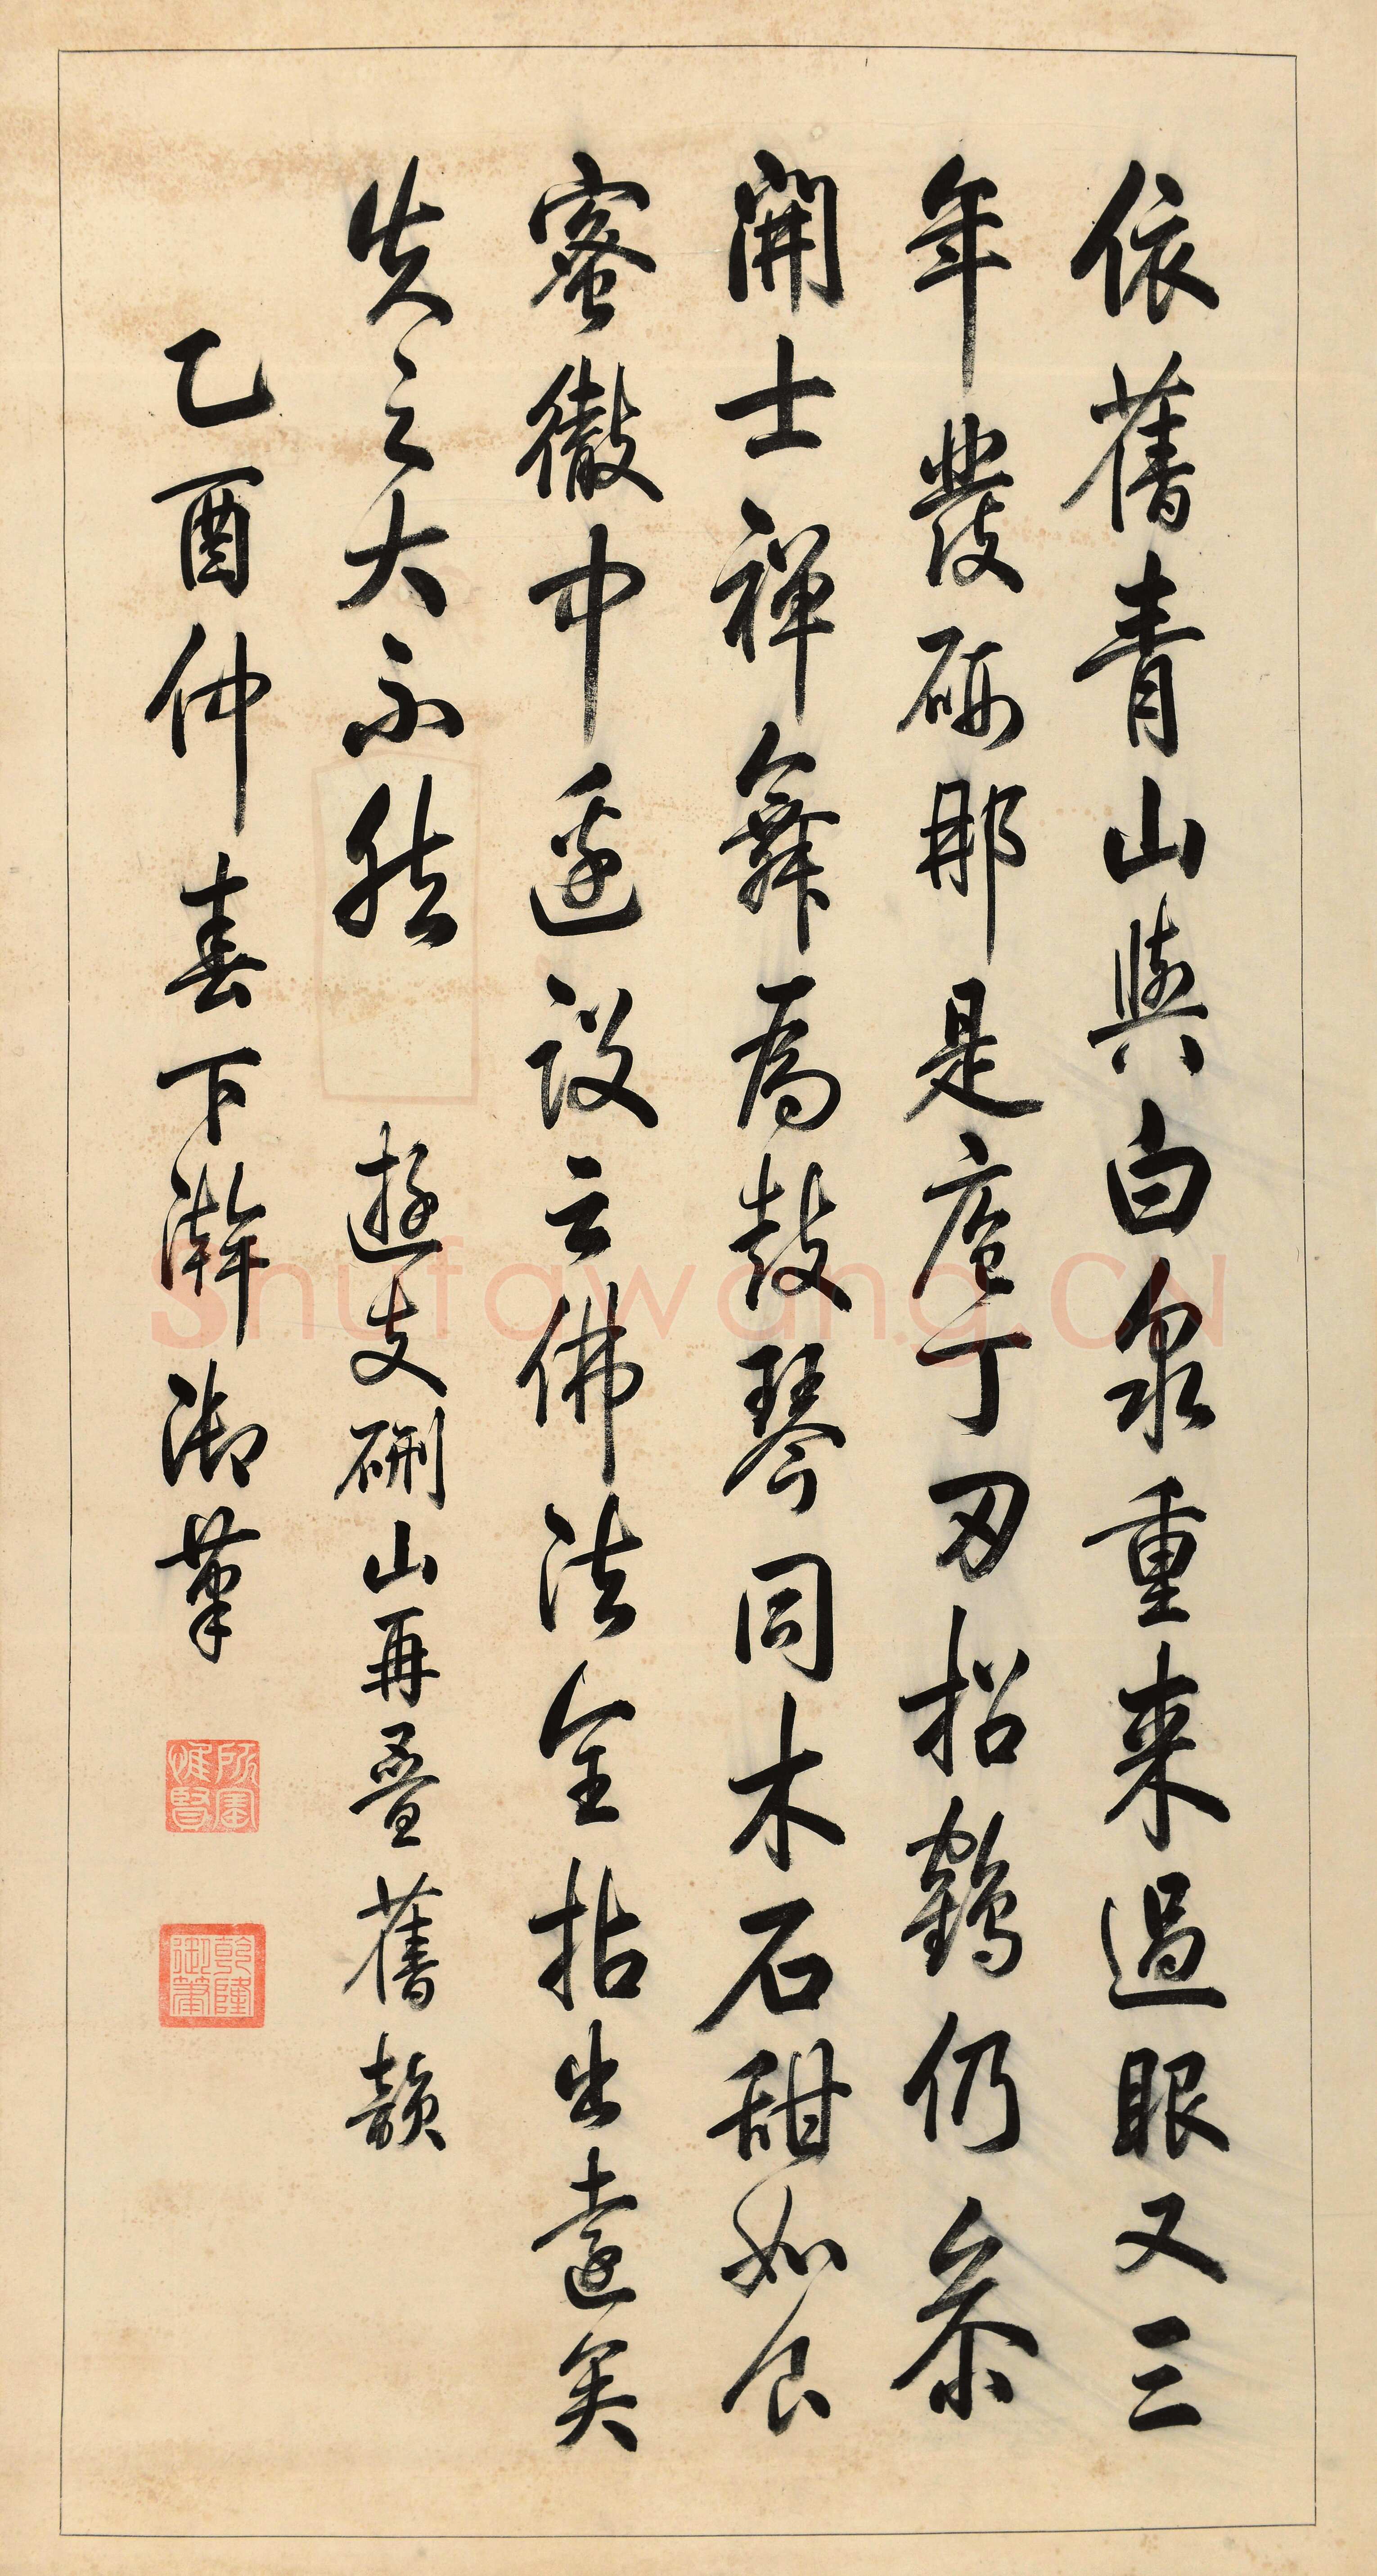 依舊青山與白泉重来過眼又三
年發硎那是庖丁刃招鶴仍參
開士禪舞爲鼓琴同木石甜如食
蜜徹中邊設云佛法全拈出遠矣
失之大不然 遊支硎山再疊舊韻
乙酉仲春下澣御筆
所寶惟賢
乾隆御筆
Shufawang.CN